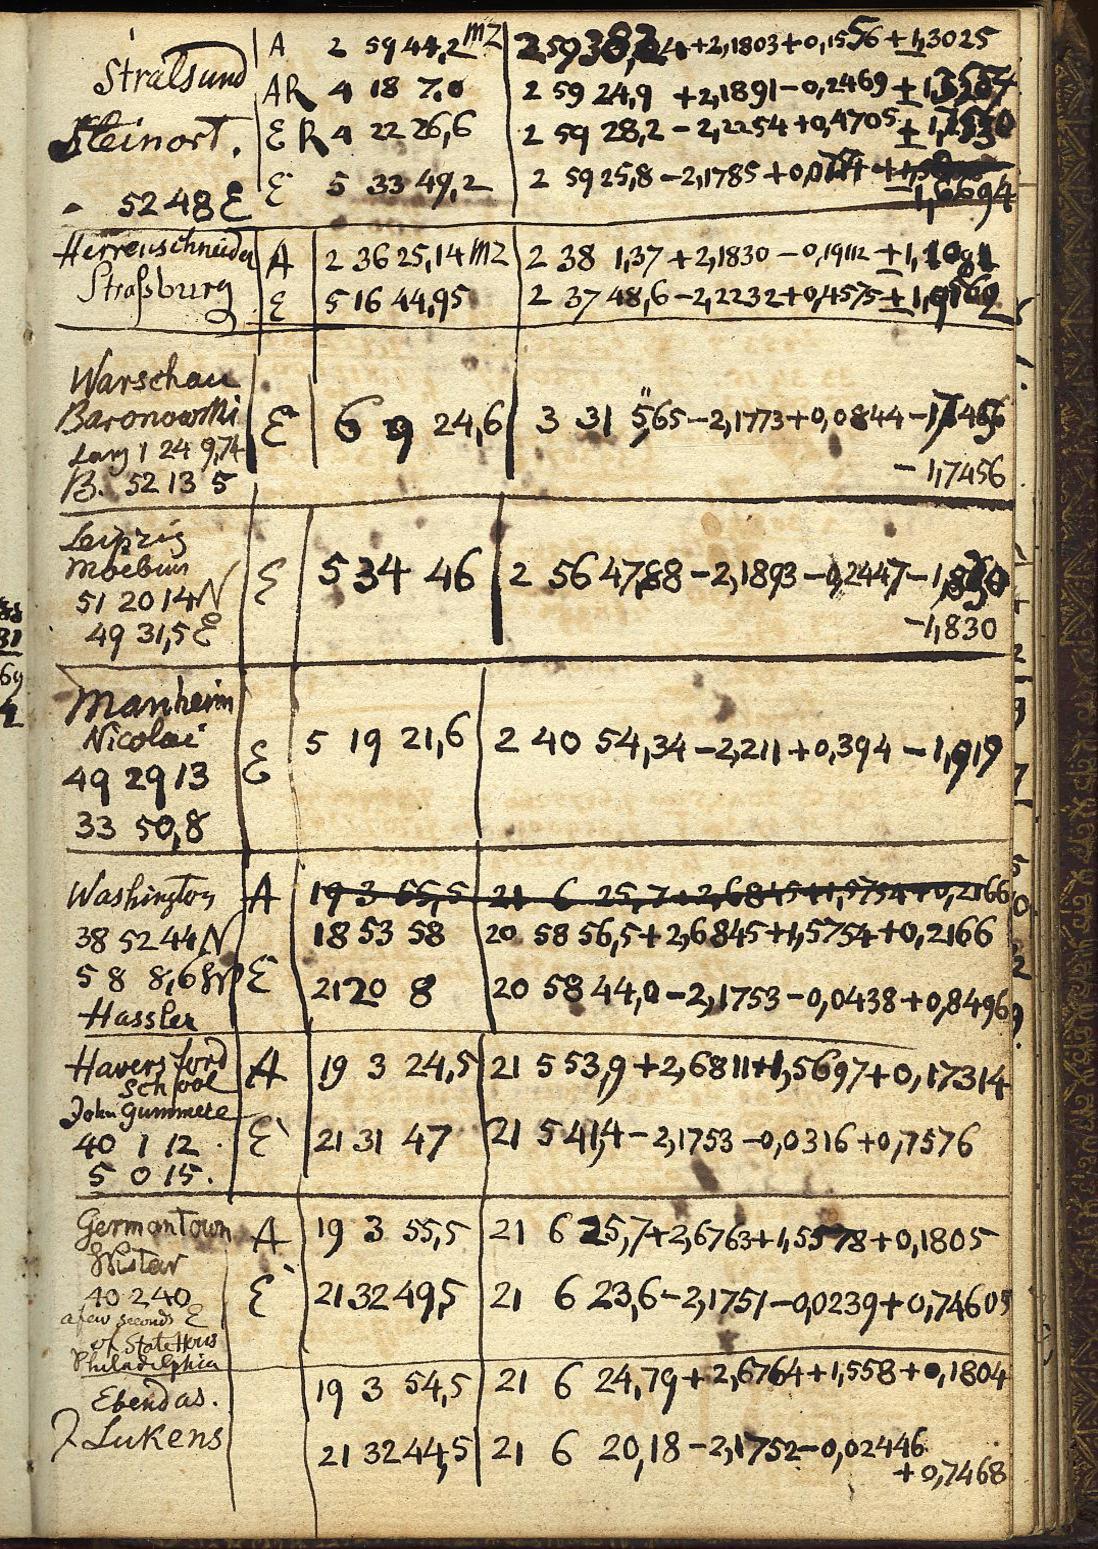 Stralsund A 2 59 44,2 MZ +2,1803+0,1556
AR 4 18 7,0 2 59 24,9 +2,1891-0,2469
Steinort. E R 4 22 26,6 2 59 28,2 -2,2254+0,4705
52 48 E E 5 33 49,2 2 59 25,8 -2,1785
1,6694
Herrenschneider A 2 36 25,14 MZ 2 38 1,37 +2,1830 -0,19112
Straßburg E 5 16 44,95 2 37 48,6 -2,2232+0,4575
Warschau
Baronowski E 6 9 24,6 3 31 5,65 -2,1773+0,0844
Lang 1 24 9,74
B. 52 13 5 -1,7456
Leipzig
Moebius E 5 34 46 2 56 47,88 -2,1893 -0,2447
51 20 14 N
49 31,5 E -1,830
Manheim
Nicolai E 5 19 21,6 2 40 54,34 -2,211 +0,394 -1,919
49 29 13
33 50,8
Washington A 19 3 55,5 21 6 25,7 + 2,6845+1,5754+0,2166
38 52 44 N 18 53 58 20 58 56,5+2,6845+1,5754+0,2166
5 8 8,6 W E 21 20 8 20 58 44,0 -2,1753 -0,0438 +0,8496
Hassler
Haversford A 19 3 24,5 21 5 53,9 +2,6811+1,5697+0,17314
School
John Gummere
40 1 12 . E 21 31 47 21 5 41,4 - 2,1753 -0,0316 +0,7576
5 0 15.
Germantown A 19 3 55,5 21 6 25,7+2,6763+1,5578+0,1805
Wistar
40 2 40 E 21 32 49,5 21 6 23,6 -2,1751 -0,0239+0,74605
a few seconds E
of State Hous
Philadelphia
Ebendas. 19 3 54,5 21 6 24,79+2,6764+1,558+0,1804
J Lukens 21 32 44,5 21 6 20,18 -2,1752-0,02446
+0,7468